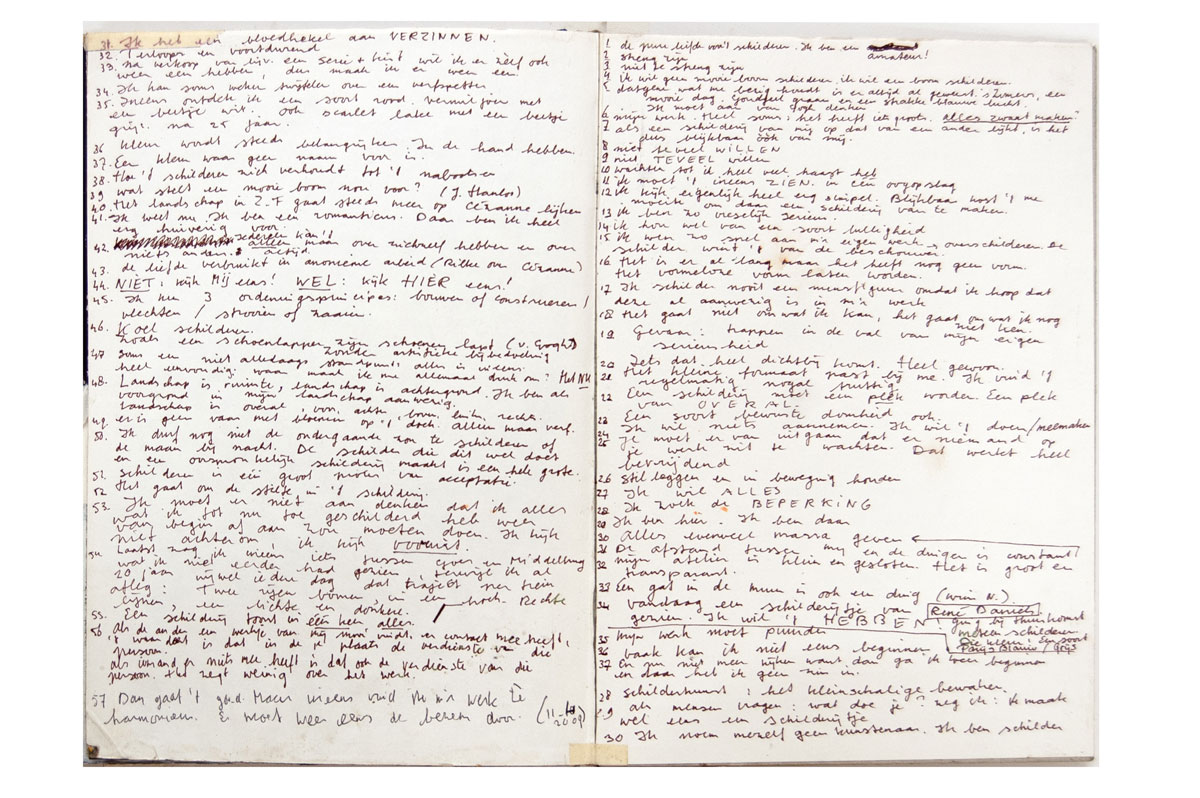 31. Ik heb een bloedhekel aan VERZINNEN.
32. Terloops en voortdurend
33. na verkoop van bijv. een serie + lijst wil ik er zelf ook
weer een hebben, dus maak ik er weer een.
34. Ik kan soms weken twijfelen over een verfspetter
35. Ineens ontdek ik een soort rood. vermiljoen met
een beetje wit. ook scarlet lake met een beetje
grijs. na 25 jaar.
36 klein wordt steeds belangrijker. In de hand hebben.
37. Een klein waar geen naam voor is.
38. Hoe 't schilderen zich verhoudt tot 't nabootsen
39 wat stelt een mooie boom nou voor? (J. Hanlo)
40. Het landschap in Z.F gaat steeds meer op Cézanne lijken
41. Ik weet nu. Ik ben een romanticus. Daar ben ik heel
erg huiverig voor.
42. iedereen kan 't
alleen maar over zichzelf hebben en over
niets anders. altijd
43. de liefde verbruikt in anonieme arbeid (Rilke over Cézanne)
44. NIET: kijk Mij eens! WEL: kijk HIER eens!
45. Ik ken 3 ordeningsprincipes: bouwen of construeren /
vlechten / strooien of zaaien.
46. Koel schilderen.
zoals een schoenlapper zijn schoenen lapt (v. Gogh)
47 zonder artistieke bijbedoeling
Soms en niet alledaags standpunt: alles is ineens
heel eenvoudig. waar maak ik me allemaal druk om? Het NU
48. Landschap is ruimte, landschap is achtergrond. Ik ben als
voorgrond in mijn landschap aanwezig.
landschap is overal, voor, achter, boven, links, rechts.
49. er is geen vaas met bloemen op 't doek. alleen maar verf.
50. Ik durf nog niet de ondergaande zon te schilderen of
de maan bij nacht. De schilder die dit wel doet
en een oorspronkelijk schilderij maakt is een hele grote.
51. schilderen is één groot proces van acceptatie.
52 Het gaat om de stilte in 't schilderij.
53. Ik moet er niet aan denken dat ik alles
wat ik tot nu toe geschilderd heb weer
van begin af aan zou moeten doen. Ik kijk
niet achterom, ik kijk vooruit.
54. Laatst zag ik ineens iets tussen Goes en Middelburg
wat ik niet eerder had gezien, terwijl ik al
20 jaar vrijwel iedere dag dat traject per trein
afleg: Twee rijen bomen, in een hoek. Rechte
lijnen, een lichte en donkere.
55. Een schilderij toont in één keer alles.
56 Als de ander een werkje van mij mooi vindt, er contact mee heeft,
't waardeert is dat in de 1e plaats de verdienste van die
persoon.
als iemand er niets mee heeft is dat ook de verdienste van die
persoon. Het zegt weinig over het werk.
57 Dan gaat 't goed. Maar ineens vind ik m'n werk te
harmonieus. Er moet weer eens de bezem door. (11-
2009)
1 de pure liefde voor 't schilderen. Ik ben een
amateur!
2 streng zijn
3 niet te streng zijn
4 ik wil geen mooie boom schilderen. ik wil een boom schilderen.
5 datgene wat me bezig houdt is er altijd al geweest. 's zomers, een
mooie dag, goudgeel graan en een strakke blauwe lucht.
Ik moet aan van Gogh denken
6 mijn werk. Heel soms: het heeft iets groots. alles zwart maken?
7 als een schilderij van mij op dat van een ander lijkt, is het
dus blijkbaar óók van mij.
8 niet teveel WILLEN
9 niet TEVEEL willen
10 wachten tot ik heel veel haast heb
11 ik moet 't ineens ZIEN. in één oogopslag
12 ik kijk eigenlijk heel erg simpel. Blijkbaar kost 't me
moeite om daar een schilderij van te maken.
13 ik ben zo vreselijk serieus.
14 ik hou wel van een soort lulligheid
15 ik wen zo snel aan m'n eigen werk → overschilderen. De
schilder wint 't van de beschouwer.
16 Het is er al lang maar het heeft nog geen vorm.
Het vormeloze vorm laten worden.
17 Ik schilder nooit een mensfiguur omdat ik hoop dat
deze al aanwezig is in m'n werk
18 Het gaat niet om wat ik kan, het gaat om wat ik nog
niet ken.
19 Gevaar: trappen in de val van mijn eigen
serieusheid
20 Iets dat heel dichtbij komt. Heel gewoon.
21 Het kleine formaat past bij me. Ik vind 't
regelmatig nogal truttig
22 Een schilderij moet een plek worden. Een plek
van OVERAL.
23 Een soort bewuste domheid ook.
24 Ik wil niets aannemen. Ik wil 't doen/meemaken
25 Je moet er van uitgaan dat er niemand op
je werk zit te wachten. Dat werkt heel
bevrijdend
26 stil leggen en in beweging houden
27 Ik wil ALLES
28 Ik zoek de BEPERKING
29 Ik ben hier. Ik ben daar
30 Alles evenveel massa geven
31 De afstand tussen mij en de dingen is constant
32 mijn atelier is klein en gesloten. Het is groot en
transparant.
33 Een gat in de muur is ook een ding (wim N.)
34 vandaag een schilderijtje van René Daniëls
gezien. Ik wil 't HEBBEN! ging bij thuiskomst
meteen schilderen.
Die kleur! Een soort
Parijs Blauw / grijs
35 mijn werk moet puurder
36 vaak kan ik niet eens beginnen
37 En dan niet meer kijken want dan ga ik weer beginnen
en daar heb ik geen zin in.
28 schilderkunst: het kleinschalige bewaken.
29 als mensen vragen: wat doe je? zeg ik: ik maak
wel eens een schilderijtje
30 Ik noem mezelf geen kunstenaar. Ik ben schilder